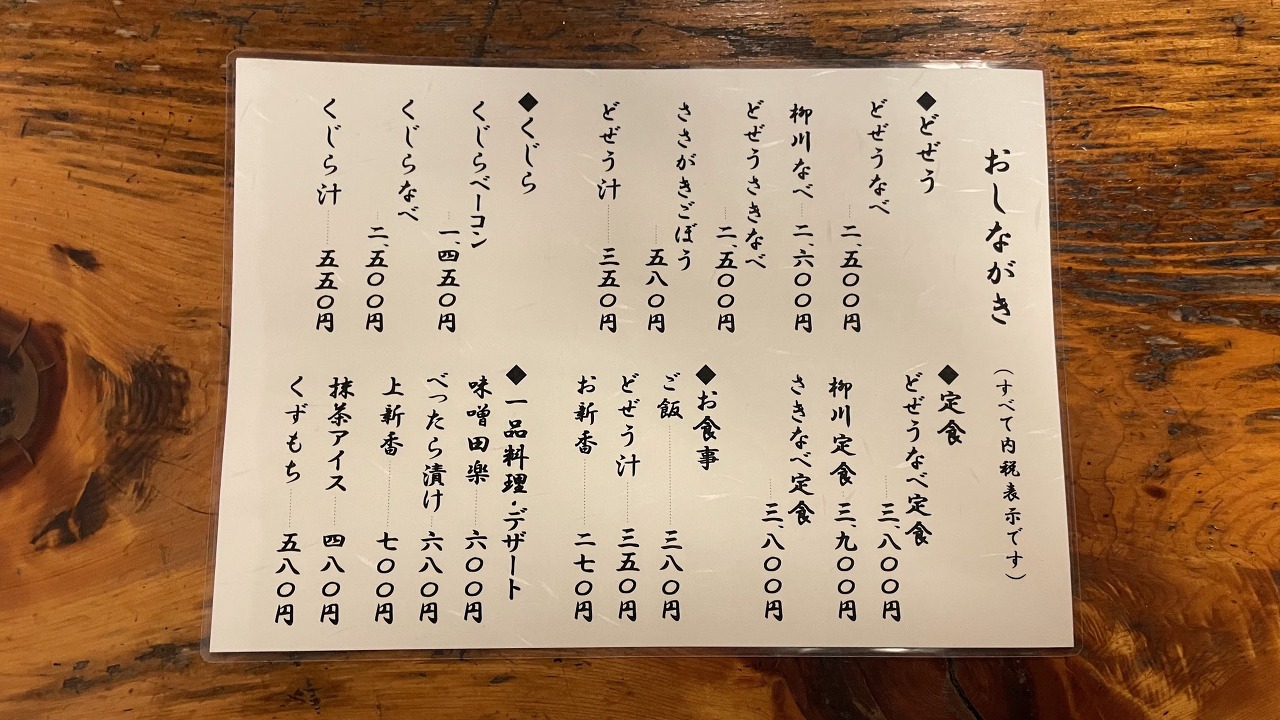 おしながき
(すべて内税表示です)
◆どぜう
どぜうなべ
二、五〇〇円
柳川なべ 二、六〇〇円
どぜうさきなべ
二、五〇〇円
ささがきごぼう
五八〇円
どぜう汁 三五〇円
◆くじら
くじらベーコン
一、四五〇円
くじらなべ
二、五〇〇円
くじら汁 五五〇円
◆定食
どぜうなべ定食
三、八〇〇円
柳川定食 三、九〇〇円
さきなべ定食
三、八〇〇円
◆お食事
ご飯 三八〇円
どぜう汁 三五〇円
お新香 二七〇円
◆一品料理・デザート
味噌田楽 六〇〇円
べったら漬け 六八〇円
上新香 七〇〇円
抹茶アイス 四八〇円
くずもち 五八〇円